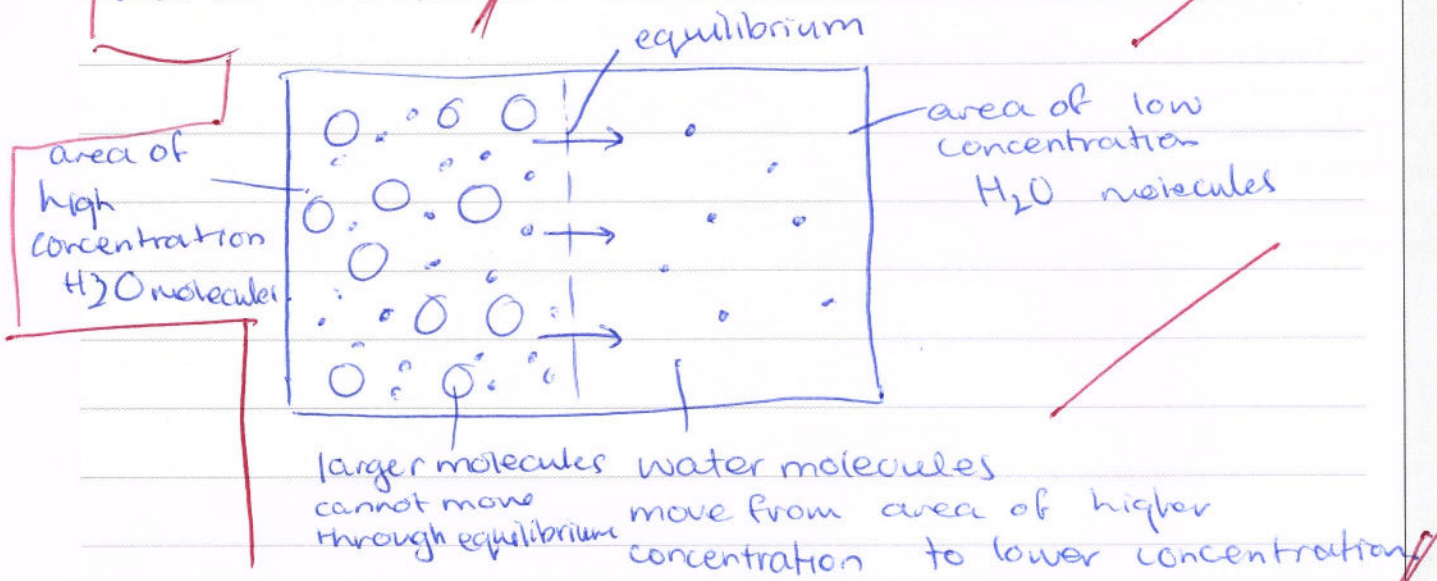 equilibrium
area of
high
concentration
H3O molecules
area of low
concentration
H2O molecules
larger molecules
cannot move
through equilibrium
water molecules
move from area of higher
concentration to lower concentration.